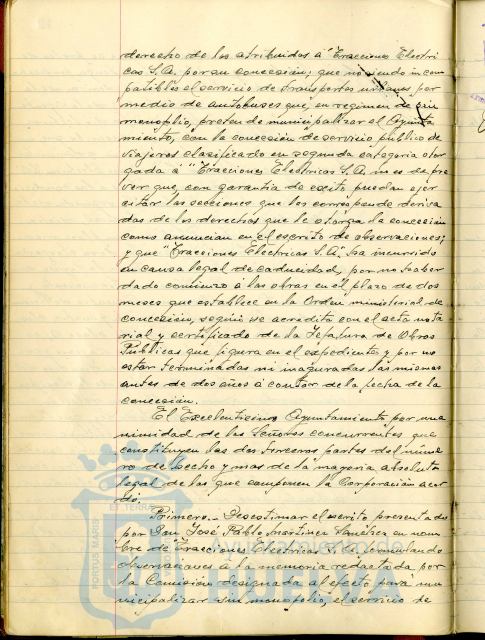 derecho de los atribuidos á "Tracciones Electri
cas S.A. por su concesión; que no siendo incom
patibles el servicio de transportes urbanos por
medio de autobuses que, en regimen de sin
monopolio, pretende municipalizar el Ayunta
miento, con la concesión de servicio público de
viajeros clasificado en segunda categoria otor
gada á "Tracciones Electricas S.A. no es de pre
ver que, con garantia de exito puedan ejer
citar las acciones que les corresponde deriva
das de los derechos que le otorga la concesión
como anuncian en el escrito de observaciones;
y que "Tracciones Electricas S.A." ha incurrido
en causa legal de caducidad, por no haber
dado comienzo á las obras en el plazo de dos
meses que establece en la Orden ministerial de
concesión, según se acredita con el acta nota
rial y certificado de la Jefatura de Obras
Públicas que figura en el expediente y por no
estar terminadas ni inaguradas las mismas
antes de dos años á contar de la fecha de la
concesión.
El Excelentisimo Ayuntamiento por una
nimidad de los Señores concurrentes que
constituyen las dos terceras partes del nume
ro de hecho y mas de la mayoria absoluta
legal de los que componen la Corporación acor
dó.
Primero.- Desestimar el escrito presentado
por Don José Pablo Martinez Sanchez en nom
bre de Tracciones Electricas S.A. formulando
observaciones á la memoria redactada por
la Comisión designada al efecto para mu
nicipalizar sin monopolio, el servicio de
PORTUS MARIS
ET TERRAE
Ayuntamiento de
HUELVA